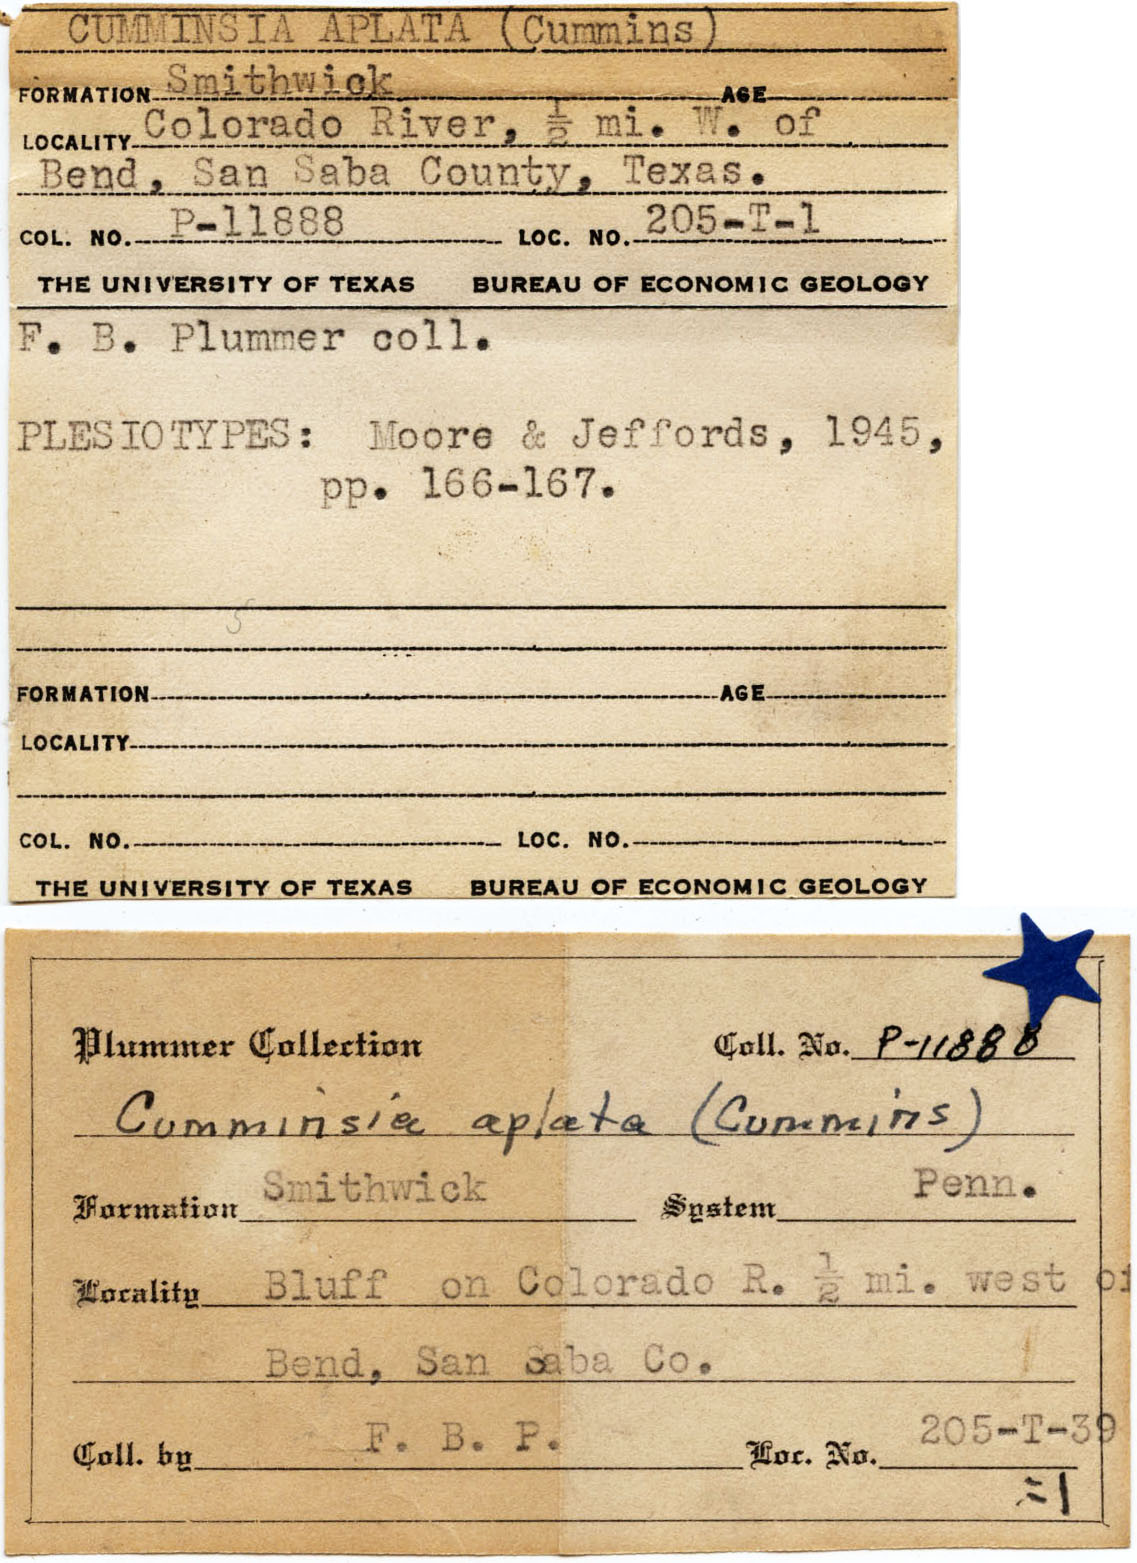 CUMMINSIA APLATA (Cummins)
FORMATION Smithwick AGE
LOCALITY Colorado River, ½ mi. W. of
Bend, San Saba County, Texas.
COL. NO. P-11888 LOC. NO. 205-T-1
THE UNIVERSITY OF TEXAS BUREAU OF ECONOMIC GEOLOGY
F. B. Plummer coll.
PLESIOTYPES: Moore & Jeffords, 1945,
pp. 166-167.
FORMATION AGE
LOCALITY
COL. NO. LOC. NO.
THE UNIVERSITY OF TEXAS BUREAU OF ECONOMIC GEOLOGY
Plummer Collection Coll. No. P-11888
Cumminsia aplata (Cummins)
Formation Smithwick System Penn.
Locality Bluff on Colorado R. ½ mi. west of
Bend, San Saba Co.
Coll. by F. B. P. Loc. No. 205-T-39
=1